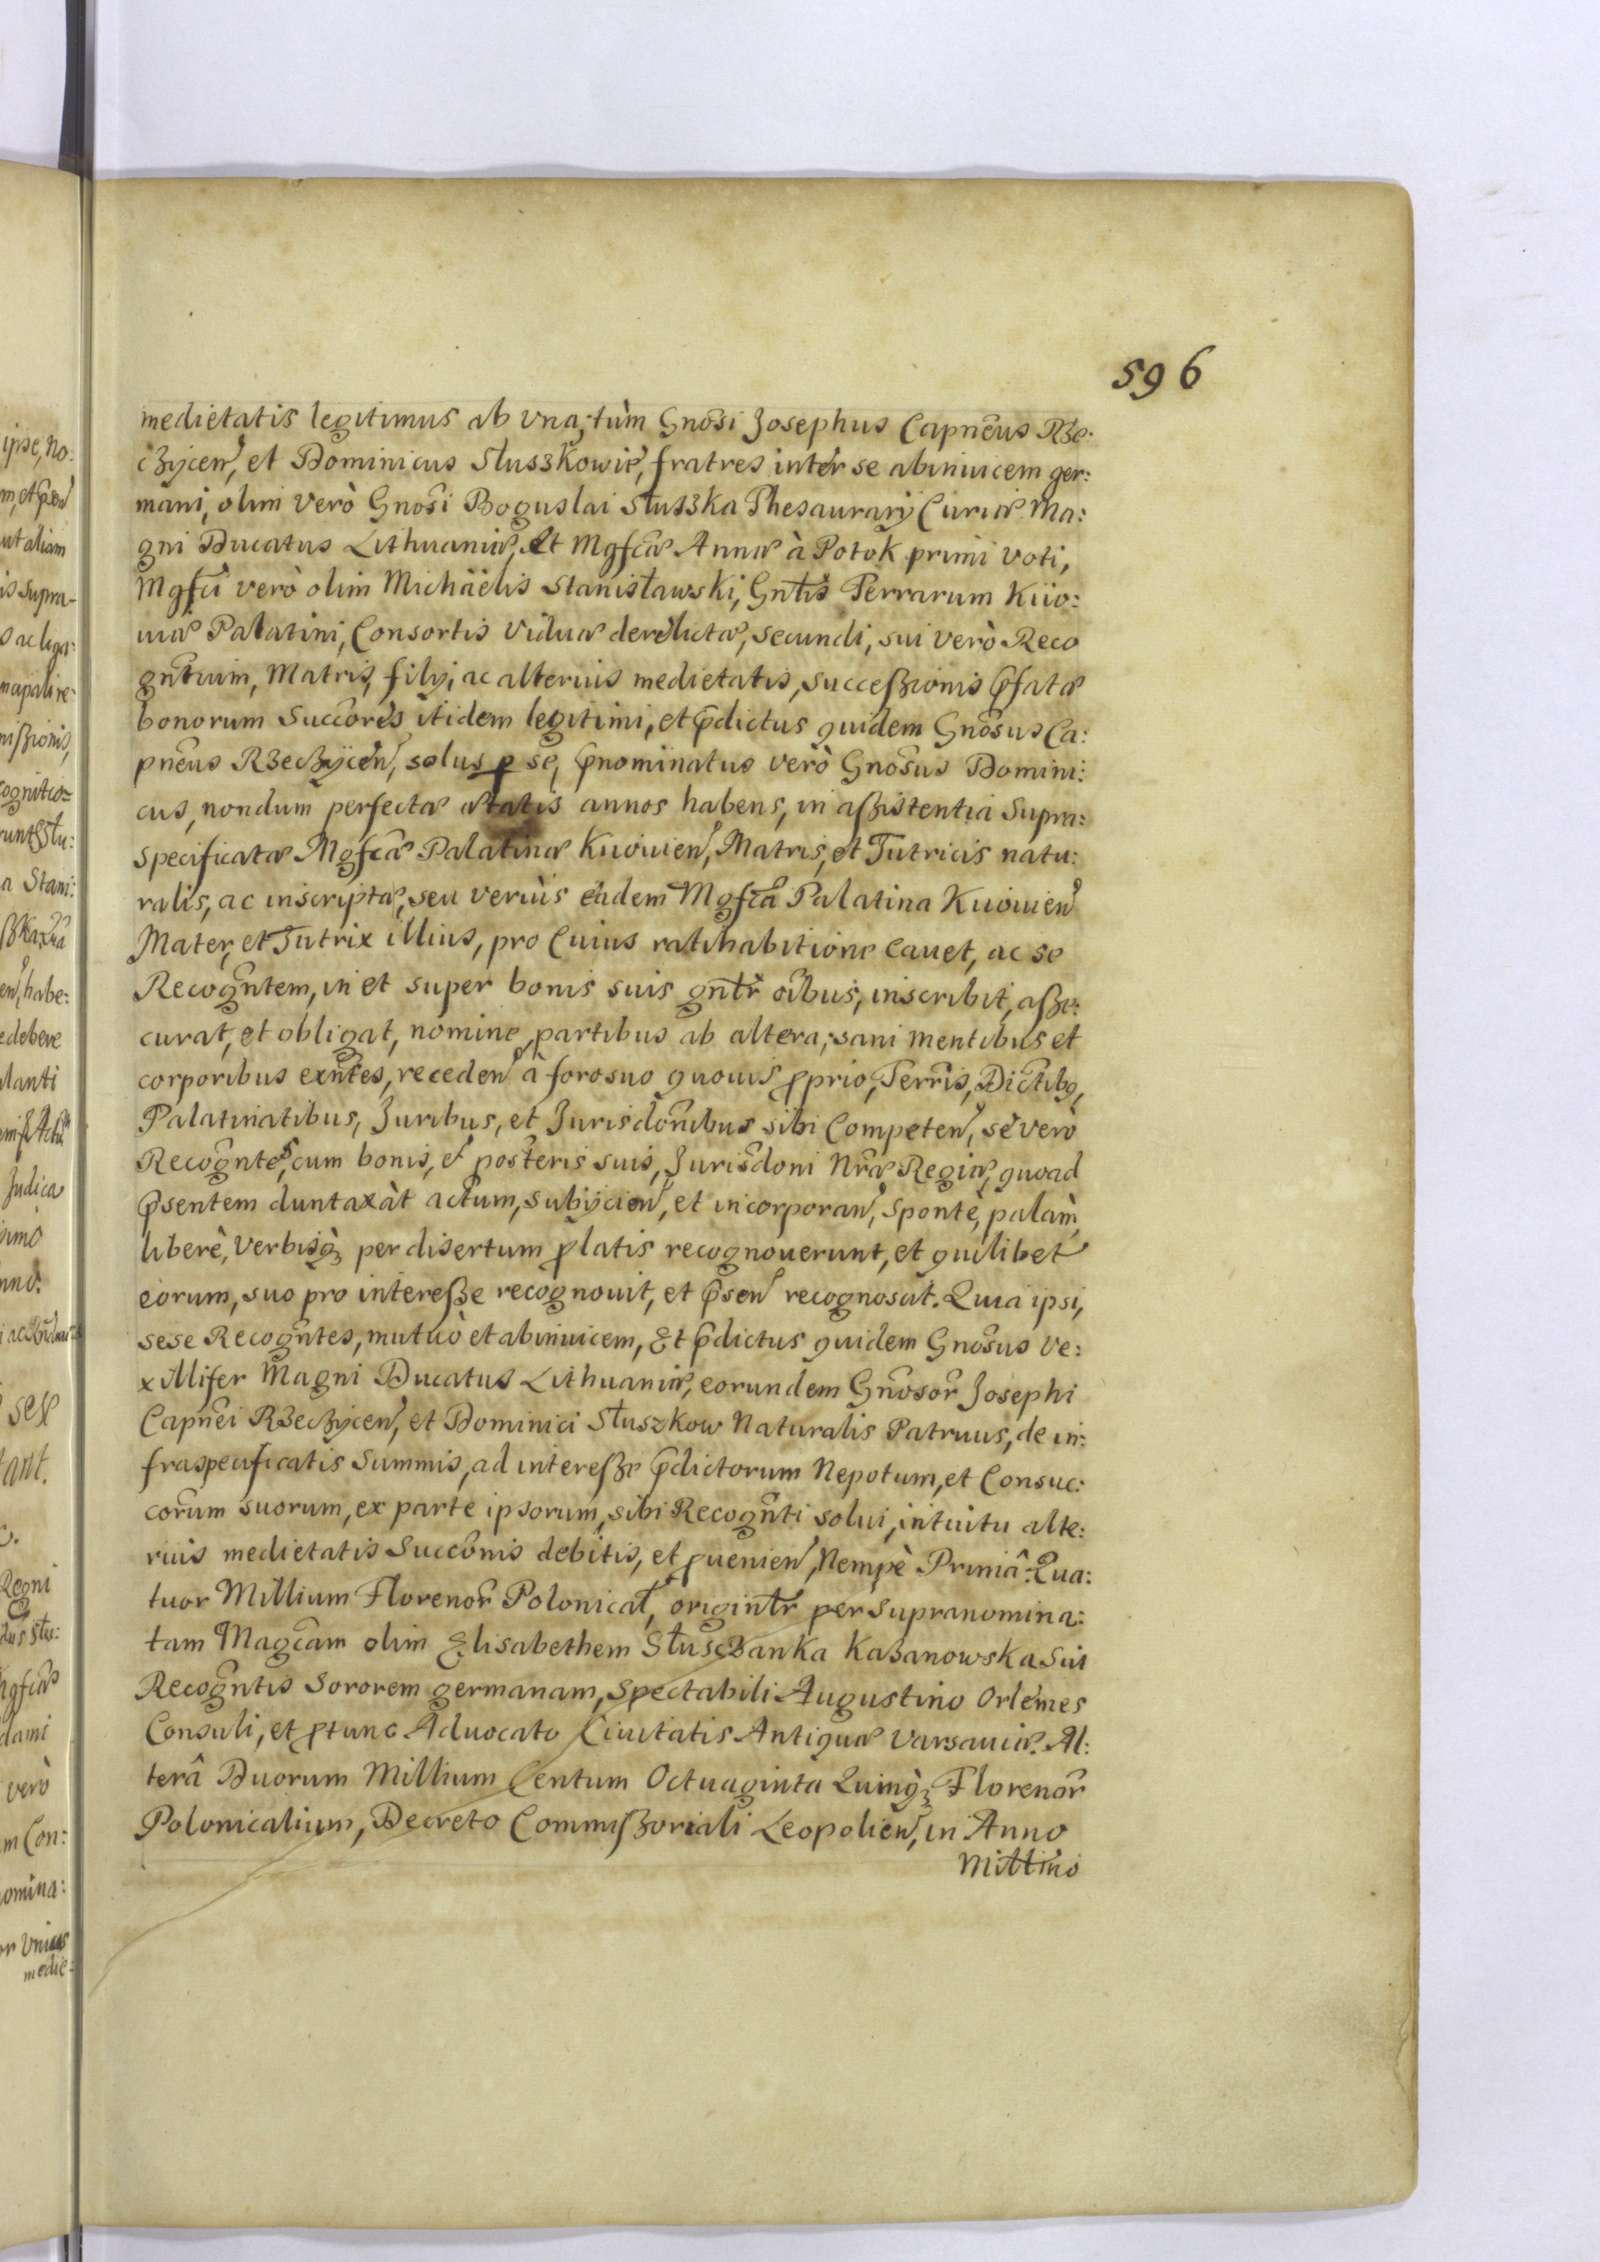 596
medietatis legitimus ab vna, tùm Gnosi Josephus Capneus Rze:
czycen, et Dominicus Sluszkowie, fratres inter se abinuicem ger:
mani, olim verò Gnosi Boguslai Słuszka Thesaurarij Curiæ Ma:
gni Ducatus Lithuaniæ, Et Mgfcæ Annæ à Potok primi voti,
Mgfci verò olim Michäelis Stanisławski, Gntis Terrarum Kiio:
uiæ Palatini, Consortis viduæ derelictæ, secundi, sui verò Reco
gntium, Matris, filij, ac alterius medietatis, successionis pfatæ
bonorum Succores itidem legitimi, et pdictus quidem Gnosus Ca:
pneus Rzeczycen, solus p se, pnominatus verò Gnosus Domini:
cus, nondum perfectæ ætatis annos habens, in assistentia supra:
specificatæ Mgfcæ Palatinæ Kiiouien, Matris, et Tutricis natu:
ralis, ac inscriptæ, seu veriùs eadem Mgfca Palatina Kiiouien
Mater, et Tutrix illius, pro Cuius ratihabitione Cauet, ac se
Recogntem, in et super bonis suis gntr oibus, inscribit, asse:
curat, et obligat, nomine, partibus ab altera; sani mentibus et
corporibus exntes, receden à foro suo quouis pprio, Terris, Dictibq,
Palatinatibus, Juribus, et Jurisdonibus sibi Competen, se verò
Recogntes, cum bonis, et posteris suis, Jurisdoni Nræ Regiæ, quoad
psentem duntaxàt actum, subijcien, et incorporan, sponte, palàm,
liberè, verbisq3 per disertum platis recognouerunt, et quilibet
eorum, suo pro interesse recognouit, et psen recognoscit. Quia ipsi,
sese Recogntes, mutuò et abinuicem, Et pdictus quidem Gnosus Ve:
xillifer Magni Ducatus Lithuaniæ, eorundem Gnosor Josephi
Capnei Rzeczycen, et Dominici Słuszkow Naturalis Patruus, de in:
fraspecificatis Summis, ad interesse pdictorum Nepotum, et Consuc:
corum suorum, ex parte ipsorum, sibi Recognti solui, intuitu alte:
rius medietatis Succonis debitis, et puenien, Nempè Primâ: Qua:
tuor Millium Florenor Polonical, origintr per supranomina:
tam Magcam olim Elisabethem Słusczanka Kazanowska Sui
Recogntis Sororem germanam, Spectabili Augustino Orlemes
Consuli, et ptunc Aduocato Ciuitatis Antiquæ Varsauiæ. Al:
terâ Duorum Millium Centum Octuaginta Quinq3 Florenor
Polonicalium, Decreto Commissoriali Leopolien, in Anno
Millimo